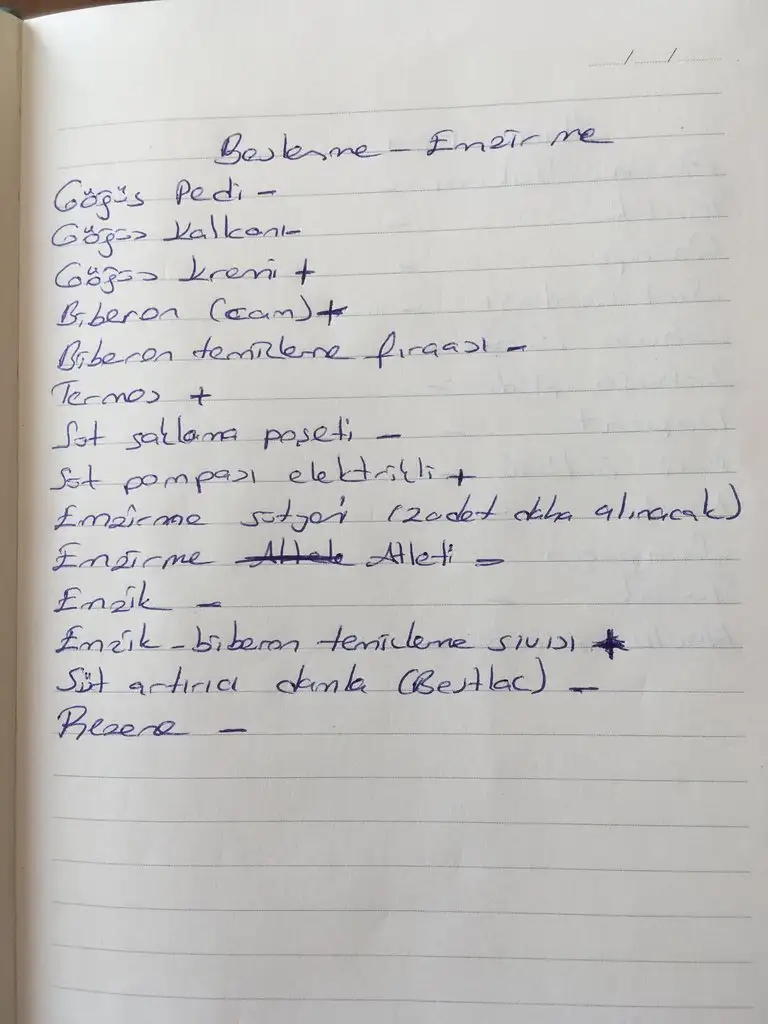 Beslenme - Emzirme
Göğüs Pedi -
Göğüs Kalkanı -
Göğüs kremi +
Biberon (cam) +
Biberon temizleme fırçası -
Termos +
Süt saklama poşeti -
Süt pompası elektrikli +
Emzirme sütyeni (2 adet daha alınacak)
Emzirme Atleti -
Emzik -
Emzik - biberon temizleme sıvısı +
Süt artırıcı damla (Bestlac) -
Rezene -